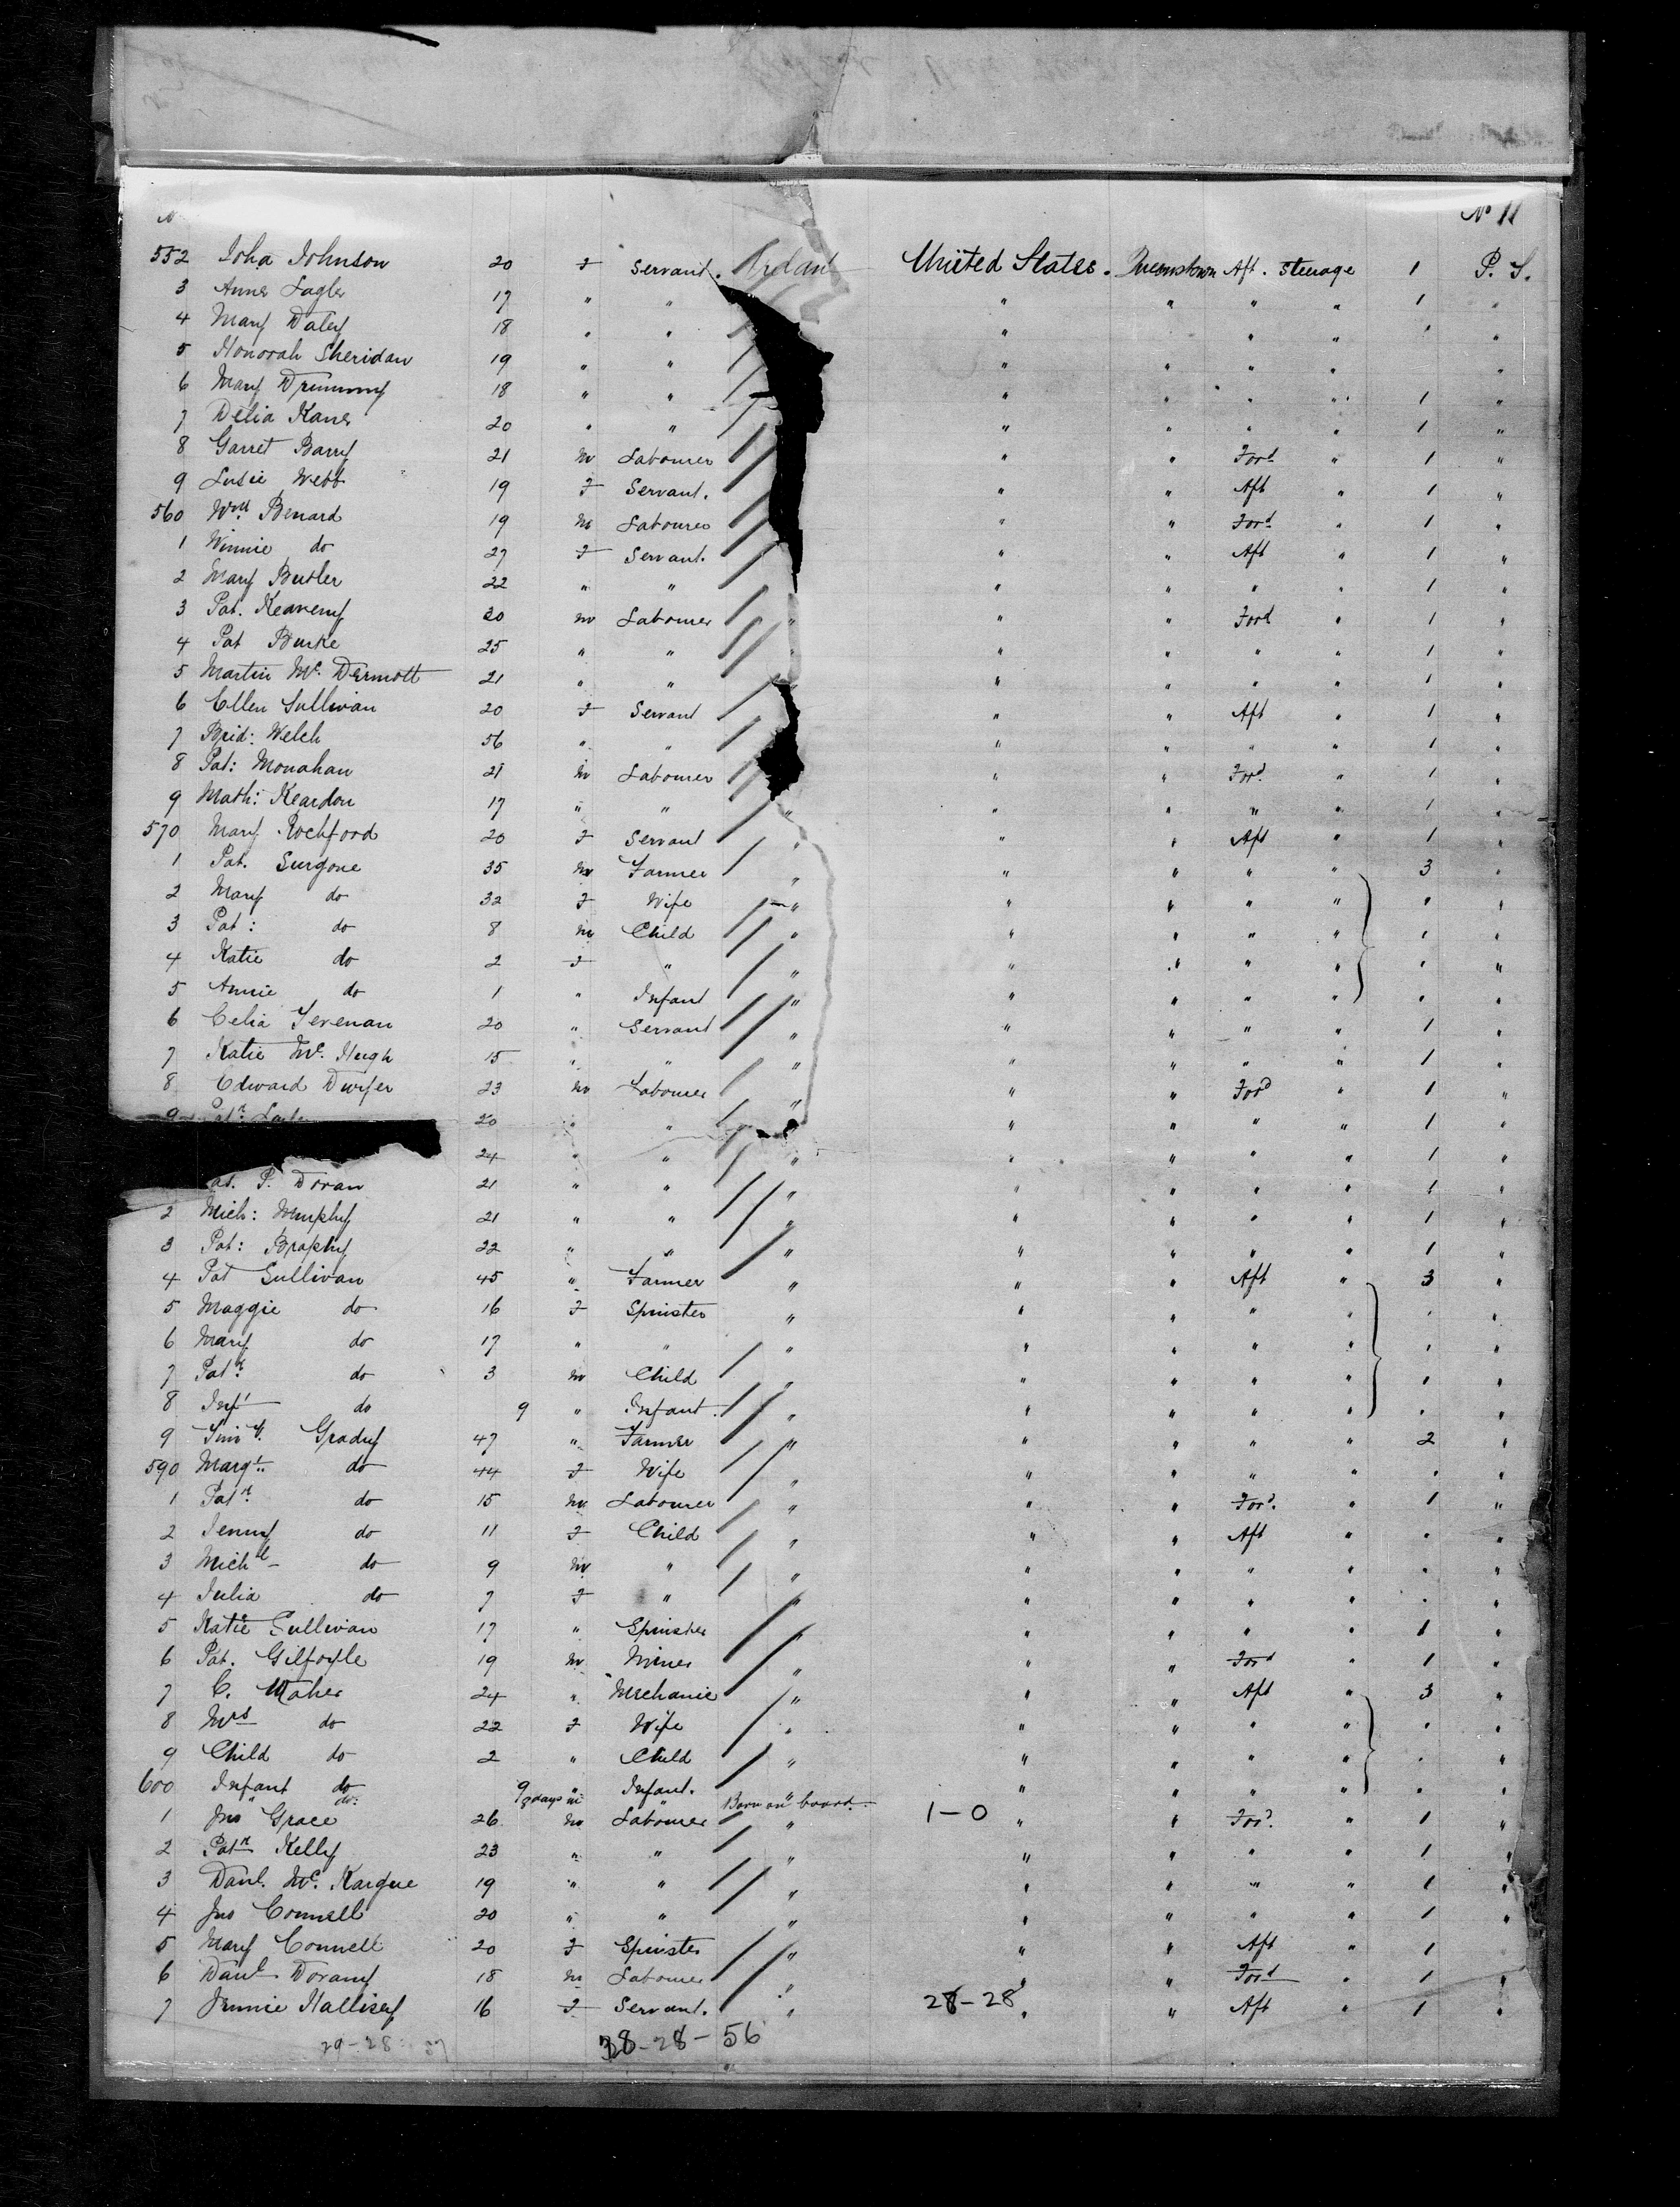 No 11
552 Joha Johnson 20 F Servant. Ireland United States. Queenstown Aft. Steerage 1 P. S.
3 Annes Lagler 17 " " " " " " 1 "
4 Mary Daley 18 " " " " " "
5 Honorah Sheridan 19 " " " " " " "
6 Mary Drummy 18 " " " " " " 1 "
7 Delia Kane 20 " " " " " " 1 "
8 Garret Barry 21 M Labourer " " Ford " 1 "
9 Susie Webb 19 F Servant. " " Aft " 1 "
560 Wm Benard 19 M Labourer " " Ford " 1 "
1 Winnie do 27 F Servant. " " Aft " 1 "
2 Mary Butler 22 " " " " " " 1 "
3 Pat. Keaveny 20 M Labourer " " " Ford " 1 "
4 Pat Burke 25 " " " " " " " 1 "
5 Martin Mc. Dermott 21 " " " " " " 1 "
6 Ellen Sullivan 20 F Servant " " Aft " 1 "
7 Brid: Welch 56 " " " " " " 1 "
8 Pat: Monahan 21 M Labourer " " Ford " 1 "
9 Math: Reardon 17 " " " " " " " 1 "
570 Mary Rochford 20 F Servant " " " Aft " 1 "
1 Pat. Surgone 35 M Farmer " " " " " 3 "
2 Mary do 32 F Wife " " " " " " "
3 Pat: do 8 M Child " " " " " " "
4 Katie do 2 F " " " " " " " "
5 Annie do 1 " Infant " " " " " " "
6 Celia Tevenan 20 " Servant " " " " " 1 "
7 Katie Mc. Hugh 15 " " " " " " " 1 "
8 Edward Dwyer 23 M Labourer " " " Ford " 1 "
9 Patk 20 " " " " " " 1 "
24 " " " " " " " 1 "
at. P. Doran 21 " " " " " " " 1 "
2 Mich: Murphy 21 " " " " " " " 1 "
3 Pat: Brophy 22 " " " " " " " 1 "
4 Pat Sullivan 45 " Farmer " " " Aft " 3 "
5 Maggie do 16 F Spinster " " " " " " "
6 Mary do 17 " " " " " " " " "
7 Patk do 3 M Child " " " " " " "
8 Inft do 9 " Infant. " " " " " " "
9 Timy. Grady 47 " Farmer " " " " " 2 "
590 Margt. do 44 F Wife " " " " " " "
1 Patk do 15 M Labourer " " " Ford. " 1 "
2 Jenny do 11 F Child " " " Aft " " "
3 Michl do 9 M " " " " " " " "
4 Julia do 7 F " " " " " " " "
5 Katie Sullivan 17 " Spinster " " " " " 1 "
6 Pat. Gilfoyle 19 M Miner " " " Ford " 1 "
7 C. Maher 24 " Mechanic " " " Aft " 3 "
8 Mrs do 22 F Wife " " " " " " "
9 Child do 2 " Child " " " " " " "
600 Infant do 9 " Infant. " " " " " "
" do. 8 days m " Born on board. 1-0
1 Jno Grace 26 M Labourer " " " Ford. " 1 "
2 Patk Kelly 23 " " " " " " " 1 "
3 Danl. Mc. Kargue 19 " " " " " " " 1 "
4 Jno Connell 20 " " " " " " " 1 "
5 Mary Connell 20 F Spinster " " " Aft " 1
6 Danl Dorany 18 M Labourer " " " Ford " 1 "
7 Jennie Hallisey 16 F Servant. " " " Aft " 1 "
28-28
29-28 57 28-28-56